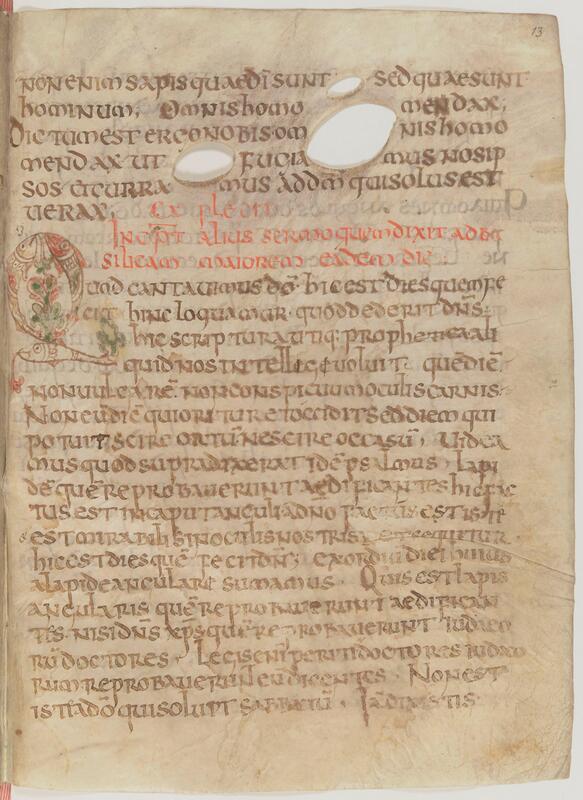 13
non enim sapis quae di̅ sunt sed quae sunt
hominum, Omnis homo mendax,
Dictum est ergo nobis om nis homo
mendax ut fugia mus nos ip
sos et curra mus ad dm̅ qui solus est
uerax, Expl
Incp̅t alius sermo quem dixit ad
silicam maiorem eadem die
Quod cantauimus do̅ hic est dies quem fe
cit hinc loquamur quod dederit dn̅s
hic scriptura utiq; prophetica ali
quid nos intellegi uoluit que̅ die̅
non uulgare̅ non conspicuum oculis carnis
Non eu̅ die̅ qui oritur et occidit sed diem qui
potuit scire ortu̅ nescire occasu̅, Uidea
mus quod supra dixerat ide̅ psalmus, Lapi
de̅ que̅ reprobauerunt aedificantes hic fac
tus est in caput anguli a dno̅ factus est
est mirabilis in oculis nostris
hic est dies que̅ fecit dn̅s; exordiu̅ diei huius
a lapide angulare sumamus. Quis est lapis
angularis que̅ reprobauerunt aedifican
tes nisi dn̅s xp̅s que̅ reprobauerunt iudaeo
ru̅ doctores, Legis enim periti doctores iudaeo
rum reprobauerunt eu̅ dicentes. Non est
iste a do̅ qui soluit sabbatu̅. Ia̅ dixistis